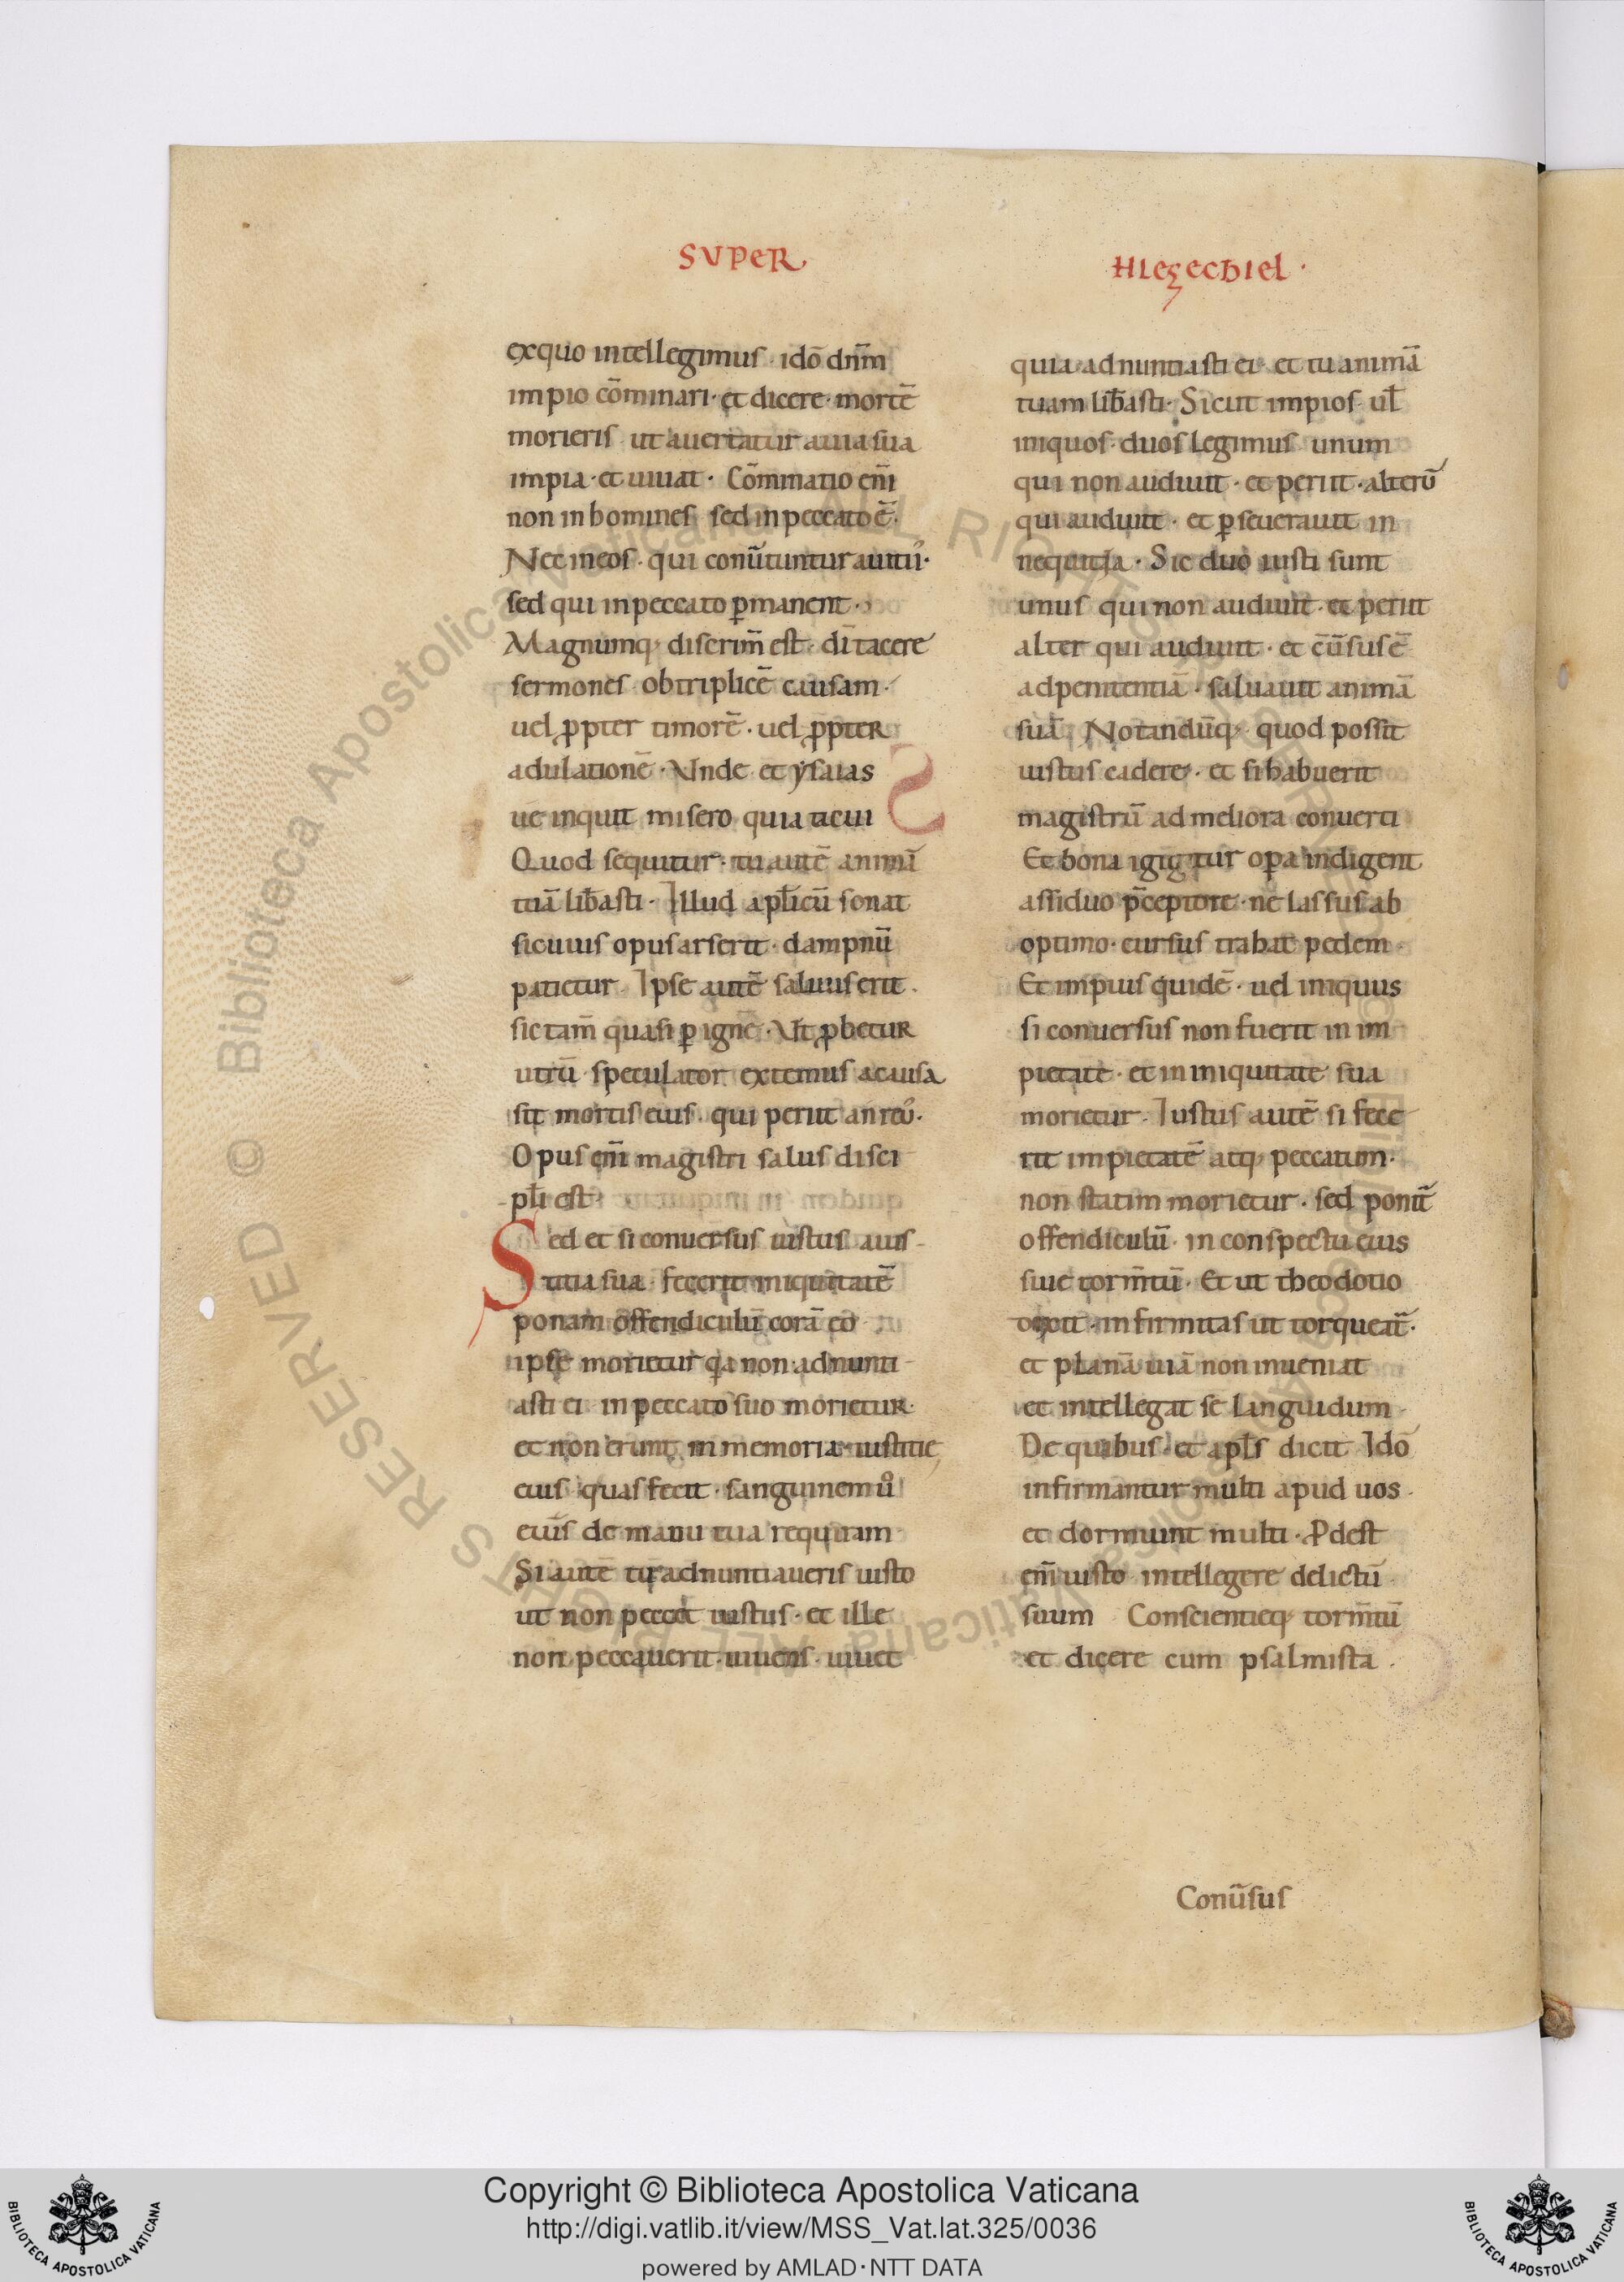 SVPER
HIEZECHIEL ·
exquo intellegimus · idō dn̄m
impio cōminari · et dicere · mortē
morieris ut auertatur auia sua
impia · et uiuat · Cōminatio eni̅
non in homines sed in peccato ē ·
Nec in eos · qui conu̅tuntur a uitiı̅ ·
sed qui in peccato p̱manent ·
Magnumq; discrim̄ est · di̅ tacere
sermones ob triplicē causam ·
uel ꝓpter timorē · uel ꝓpter
adulationē · Vnde et ysaias
uę inquit misero quia tacui
Quod sequitur · tu autē animā
tuā lib̄asti · Illud apl̄icū sonat
si cuius opus arserit · dampnū
patietur Ipse autē saluus erit ·
sic tam̄ quasi ꝑ ignē · Vt ꝓbetur
utrū speculator extemus a causa
sit mortis eius · qui periit an reuͦ ·
Opus eni̅ magistri salus disci
pl̄i est ·
Sed et si conuersus iustus a ius-
titia sua fecerit iniquitatē
ponam offendiculū corā eo
ipse morietur qa non adnunti-
asti ei in peccato suo morietur ·
et non erunt in memoria iustitię
eius quas fecit · sanguinem uͦ
eius de manu tua requiram
Si autē tu adnuntiaueris iusto
ut non peccet iustus · et ille
non peccauerit · uiuens · uiuet
quia adnuntiasti ei · et tu animā
tuam lib̄asti · Sicut impios ul̄
iniquos · duos legimus unum
qui non audiuit · et periit · alterū
qui audiuit · et ꝑseuerauit in
nequitia · Sic duo iusti sunt
unus qui non audiuit · et periit
alter qui audiuit · et cu̅u̅sus ē
ad penitentiā · saluauit animā
suā Notandūq; quod possit
iustus cadere · et si habuerit
magistrū ad meliora conuerti
Et bona igigitur op̱a indigent
assiduo p̄ceptore · ne lassus ab
optimo · cursus trahat pedem ·
Et impius quidē · uel iniquus
si conuersus non fuerit in im
pietate · et in iniquitate sua
morietur · Iustus autē si fece
rit impietatē atq; peccatum ·
non statim morietur · sed ponit̄
offendiculū · in conspectu eius
siue torm̄tū · Et ut theodotio
infirmitas ut torqueat̄ ·
et planā uiā non inueniat
et intellegat se languidum ·
De quibus · et apl̄s dicit Idō
infirmantur multi apud uos ·
et dormiunt multi · P̱dest
eni̅ iusto intellegere delictū
suum Conscientięq; torm̄tū
et dicere cum psalmista ·
Conu̅sus
© Biblioteca Apostolica Vaticana ALL RIGHTS RESERVED
Copyright © Biblioteca Apostolica Vaticana
http://digi.vatlib.it/view/MSS_Vat.lat.325/0036
powered by AMLAD·NTT DATA
BIBLIOTECA APOSTOLICA VATICANA
BIBLIOTECA APOSTOLICA VATICANA